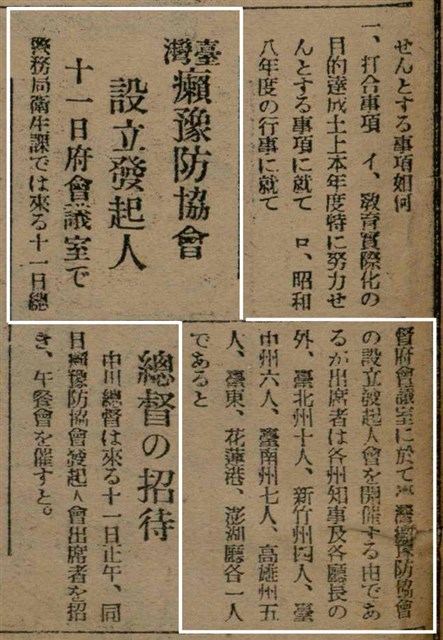 せんとする事項如何
一、打合事項　イ、敎育實際化の
目的達成上本年度特に努力せ
んとする事項に就て　ロ、昭和
八年度の行事に就て
臺灣癩豫防協會
設立發起人
十一日府會議室で
警務局衞生課では來る十一日總
督府會議室に於て臺灣癩豫防協會
の設立發起人會を開催する由であ
るが出席者は各州知事及各廳長の
外、臺北州十人、新竹州四人、臺
中州六人、臺南州七人、高雄州五
人、臺東、花蓮港、澎湖廳各一人
であると
總督の招待
中川總督は來る十一日正午、同
日癩豫防協會發起人會出席者を招
き、午餐會を催すと。